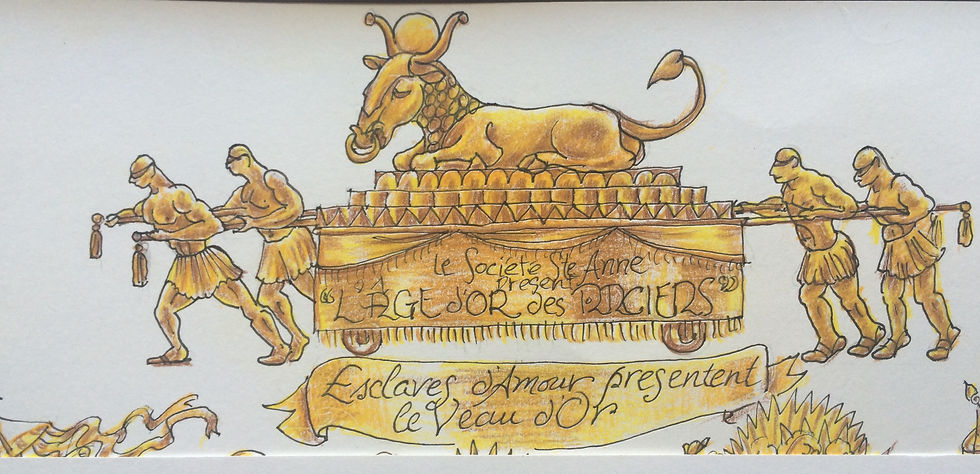 Le Société Ste Anne
Present
“L'ÂGE d'OR des ANCIENS”
Esclaves d'Amour presentent
le Veau d'Or